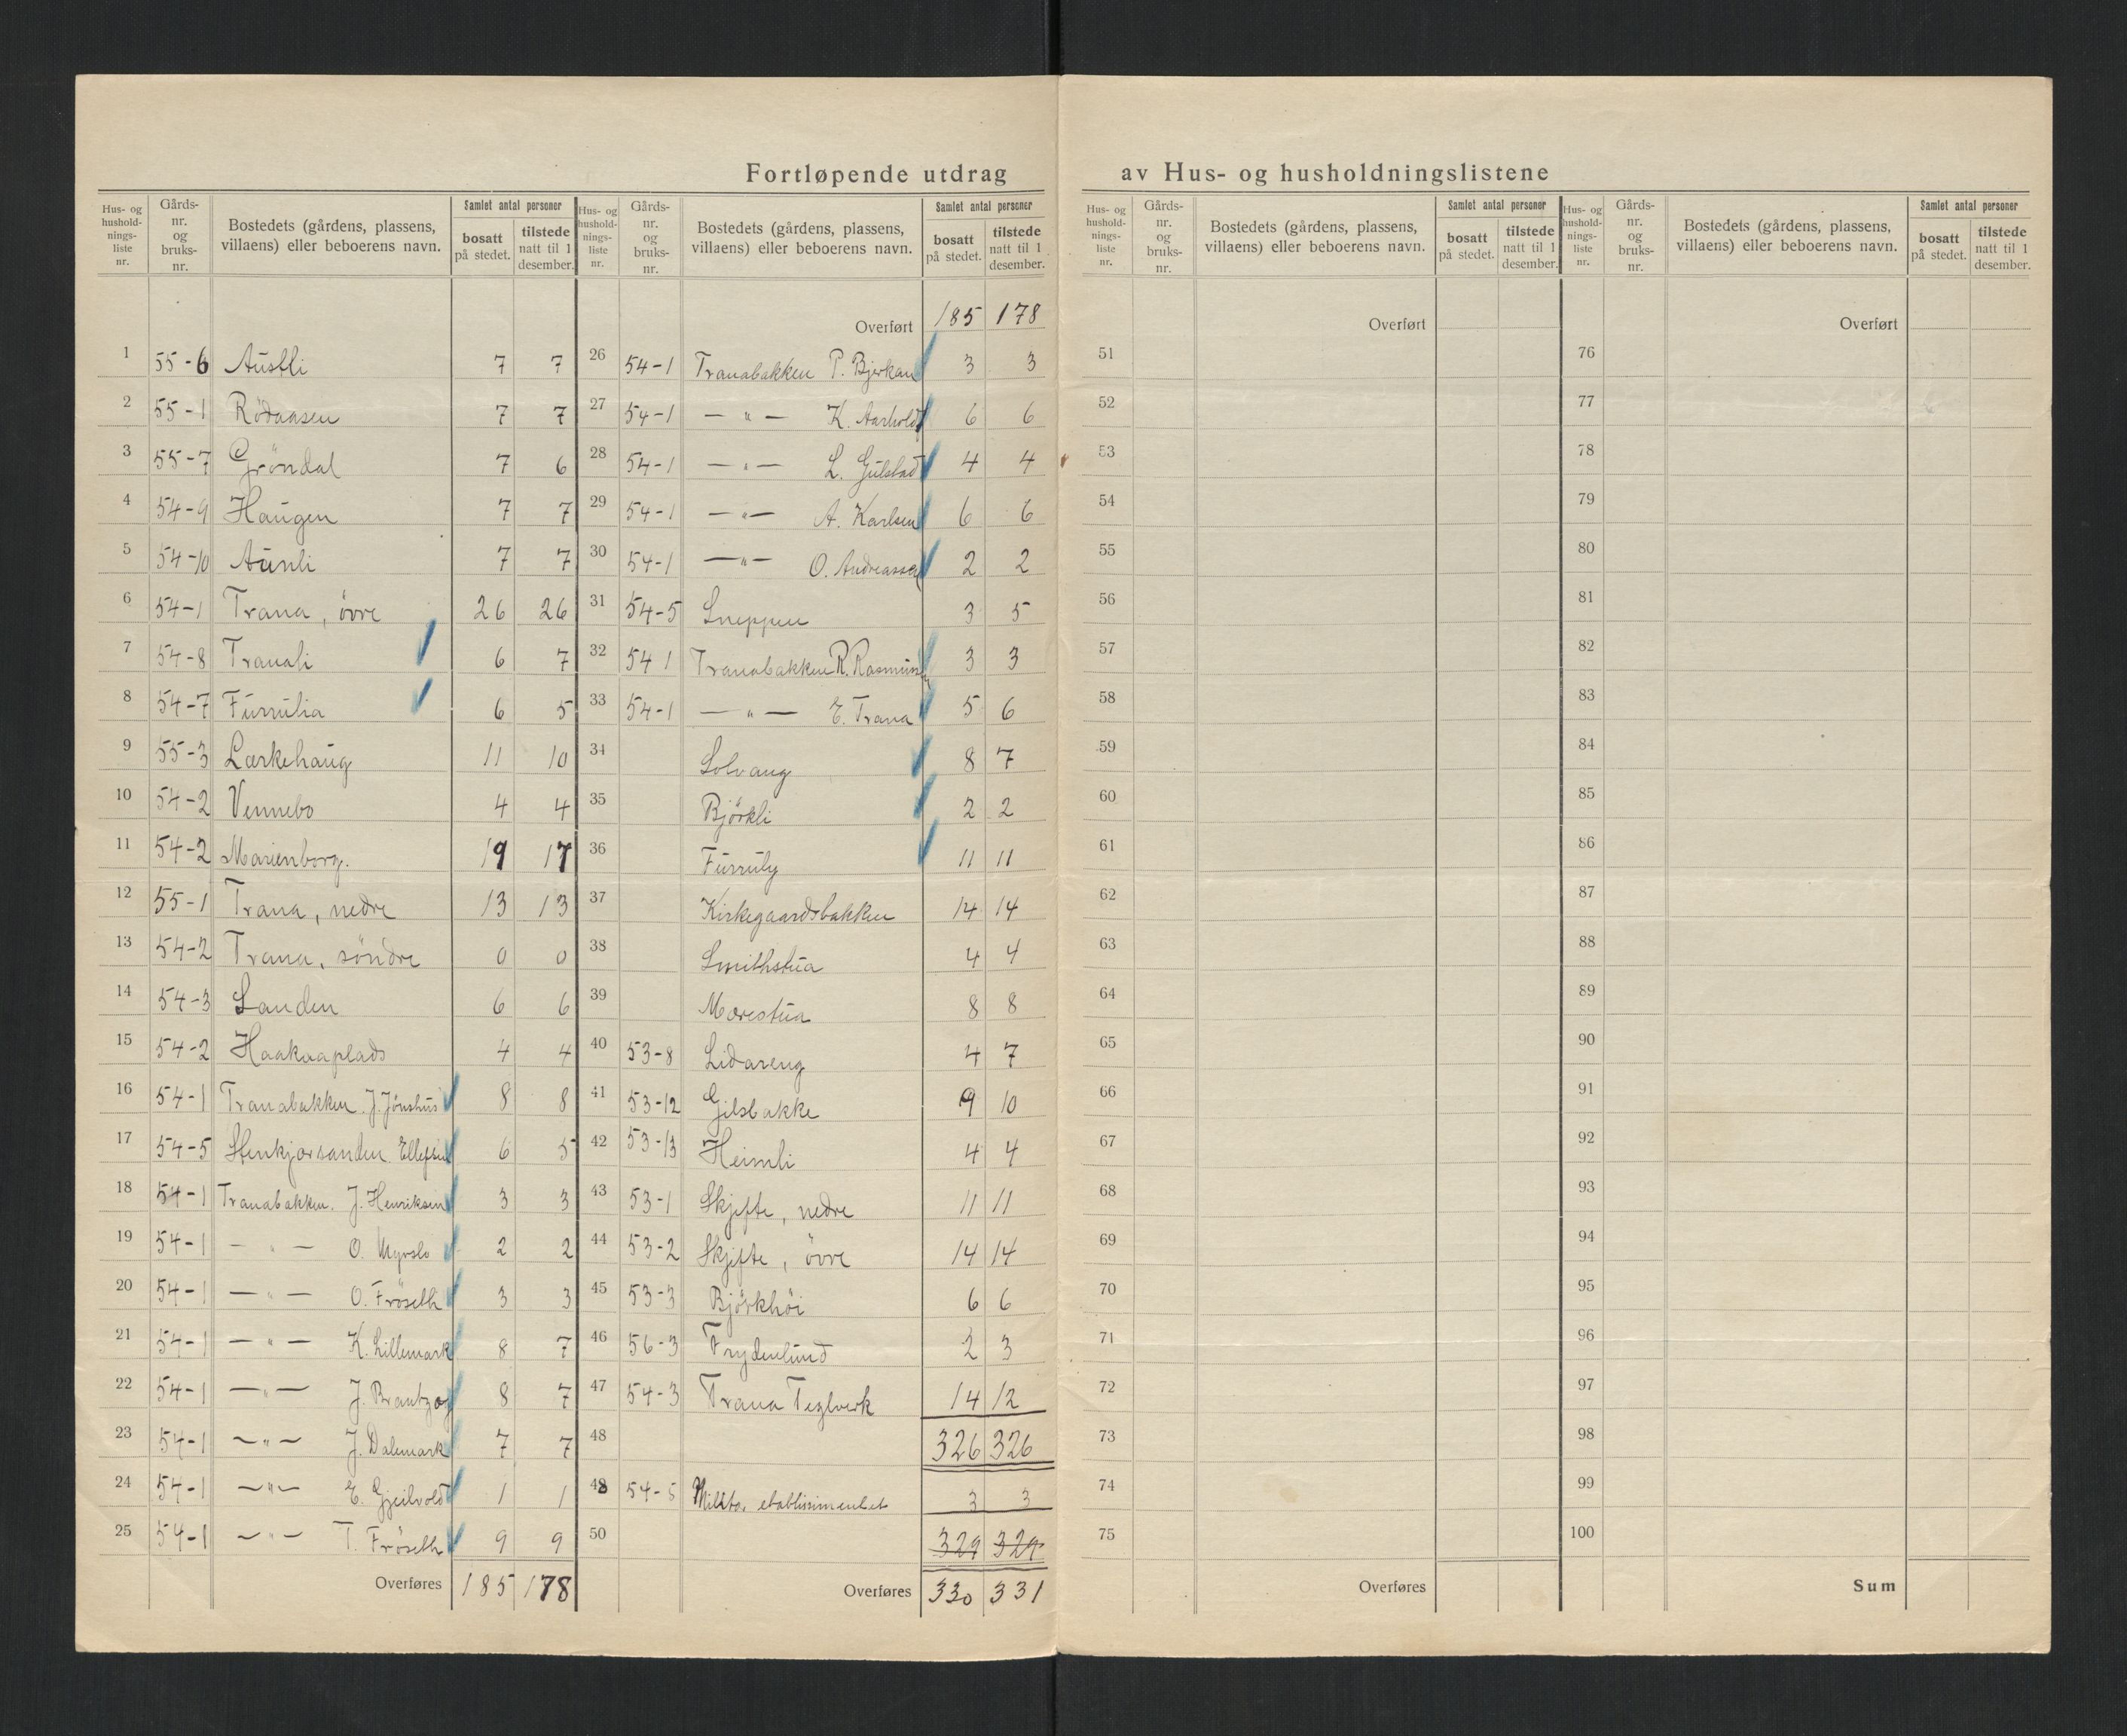 Fortløpende utdrag av Hus- og husholdningslistene
Hus- og husholdningsliste nr. | Gårds-nr. og bruks-nr. | Bostedets (gårdens, plassens, villaens) eller beboerens navn. | Samlet antal personer bosatt på stedet. | tilstede natt til 1 desember.
1 55-6 Austli 7 7
2 55-1 Rödaasen 7 7
3 55-7 Gröndal 7 6
4 54-9 Haugen 7 7
5 54-10 Aunli 7 7
6 54-1 Trana, övre 26 26
7 54-8 Tranali 6 7
8 54-7 Furrulia 6 5
9 55-3 Lærkehaug 11 10
10 54-2 Vennebo 4 4
11 54-2 Marienborg. 19 17
12 55-1 Trana, nedre 13 13
13 54-2 Trana, söndre 0 0
14 54-3 Sanden 6 6
15 54-2 Haakaaplads 4 4
16 54-1 Tranabakken J. Jönshus 8 8
17 54-5 Stenkjærsanden. Ellefsen 6 5
18 54-1 Tranabakken. J. Henriksen 3 3
19 54-1 — " — O. Myrslo 2 2
20 54-1 — " — O. Fröseth 3 3
21 54-1 — " — K. Lillemark 8 7
22 54-1 — " — J. Brantzæg 8 7
23 54-1 — " — J. Dalemark 7 7
24 54-1 — " — E. Gjeilvold 1 1
25 54-1 — " — T. Fröseth 9 9
Overføres 185 178
Hus- og husholdningsliste nr. | Gårds-nr. og bruks-nr. | Bostedets (gårdens, plassens, villaens) eller beboerens navn. | Samlet antal personer bosatt på stedet. | tilstede natt til 1 desember.
Overført 185 178
26 54-1 Tranabakken P. Bjerkan 3 3
27 54-1 — " — K. Aarhold 6 6
28 54-1 — " — L. Gulstad 4 4
29 54-1 — " — A. Karlsen 6 6
30 54-1 — " — O. Andreassen 2 2
31 54-5 Sneppen 3 5
32 54 1 Tranabakken R. Rasmussen 3 3
33 54-1 — " — E. Trana 5 6
34 Solvang 8 7
35 Björkli 2 2
36 Furruly 11 11
37 Kirkegaardsbakken 14 14
38 Smithstua 4 4
39 Mærestua 8 8
40 53-8 Lidareng 4 7
41 53-12 Gilsbakke 9 10
42 53-13 Heimli 4 4
43 53-1 Skjefte, nedre 11 11
44 53-2 Skjefte, övre 14 14
45 53-3 Björkhöi 6 6
46 56-3 Frydenlund 2 3
47 54-3 Trana Teglverk 14 12
48 326 326
48 54-5 etablissimentet 3 3
50 329 329
Overføres 330 331
Hus- og husholdningsliste nr. | Gårds-nr. og bruks-nr. | Bostedets (gårdens, plassens, villaens) eller beboerens navn. | Samlet antal personer bosatt på stedet. | tilstede natt til 1 desember.
Overført
51
52
53
54
55
56
57
58
59
60
61
62
63
64
65
66
67
68
69
70
71
72
73
74
75
Overføres
Hus- og husholdningsliste nr. | Gårds-nr. og bruks-nr. | Bostedets (gårdens, plassens, villaens) eller beboerens navn. | Samlet antal personer bosatt på stedet. | tilstede natt til 1 desember.
Overført
76
77
78
79
80
81
82
83
84
85
86
87
88
89
90
91
92
93
94
95
96
97
98
99
100
Sum